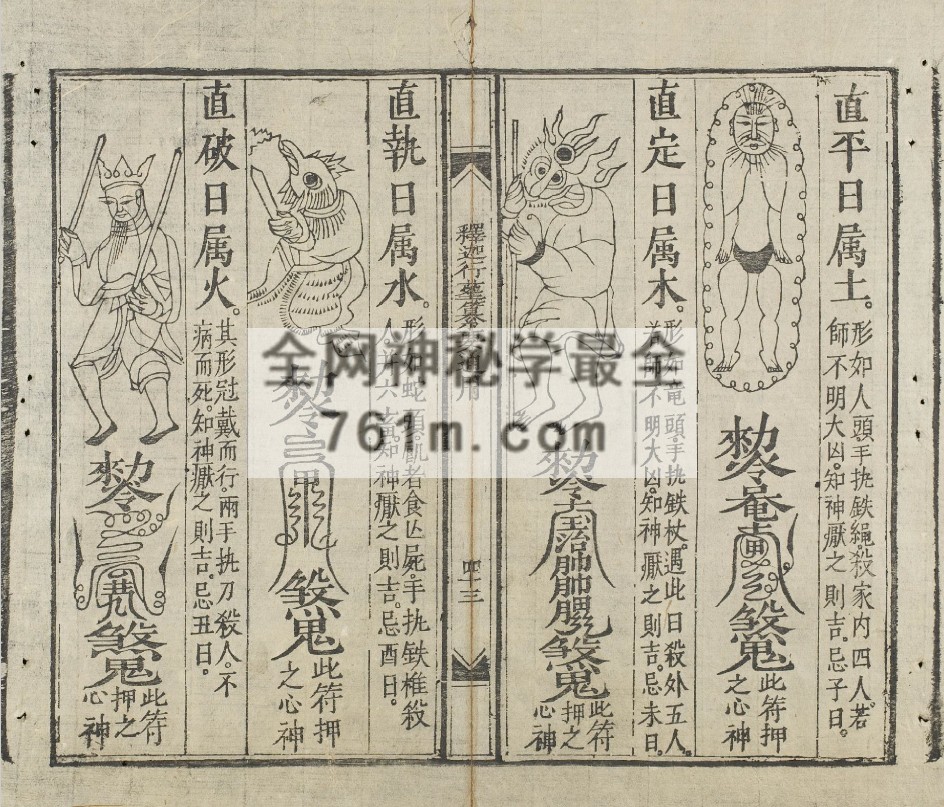 直平日属土。
形如人頭。手执鉄䋲。殺家内四人。若
師不明大凶。知神厭之則吉。忌子日。
勅令
煞鬼
此符押
之心神
直定日属木。
形如竜頭。手执鉄杖。遇此日殺外五人。
不明大凶。知神厭之則吉。忌未日。
勅令
治
煞鬼
此符
押之
心神
釋迦行
四十三
直執日属水。
形如蛇頭。飢者食亾屍。手执鉄椎殺
人。知神厭之則吉。忌酉日。
煞鬼
此符押
之心神
直破日属火。
其形冠戴而行。兩手执刀殺人。不
病而死。知神厭之則吉。忌丑日。
勅令
煞鬼
此符
押之
心神
全网神秘学最全
761m.com